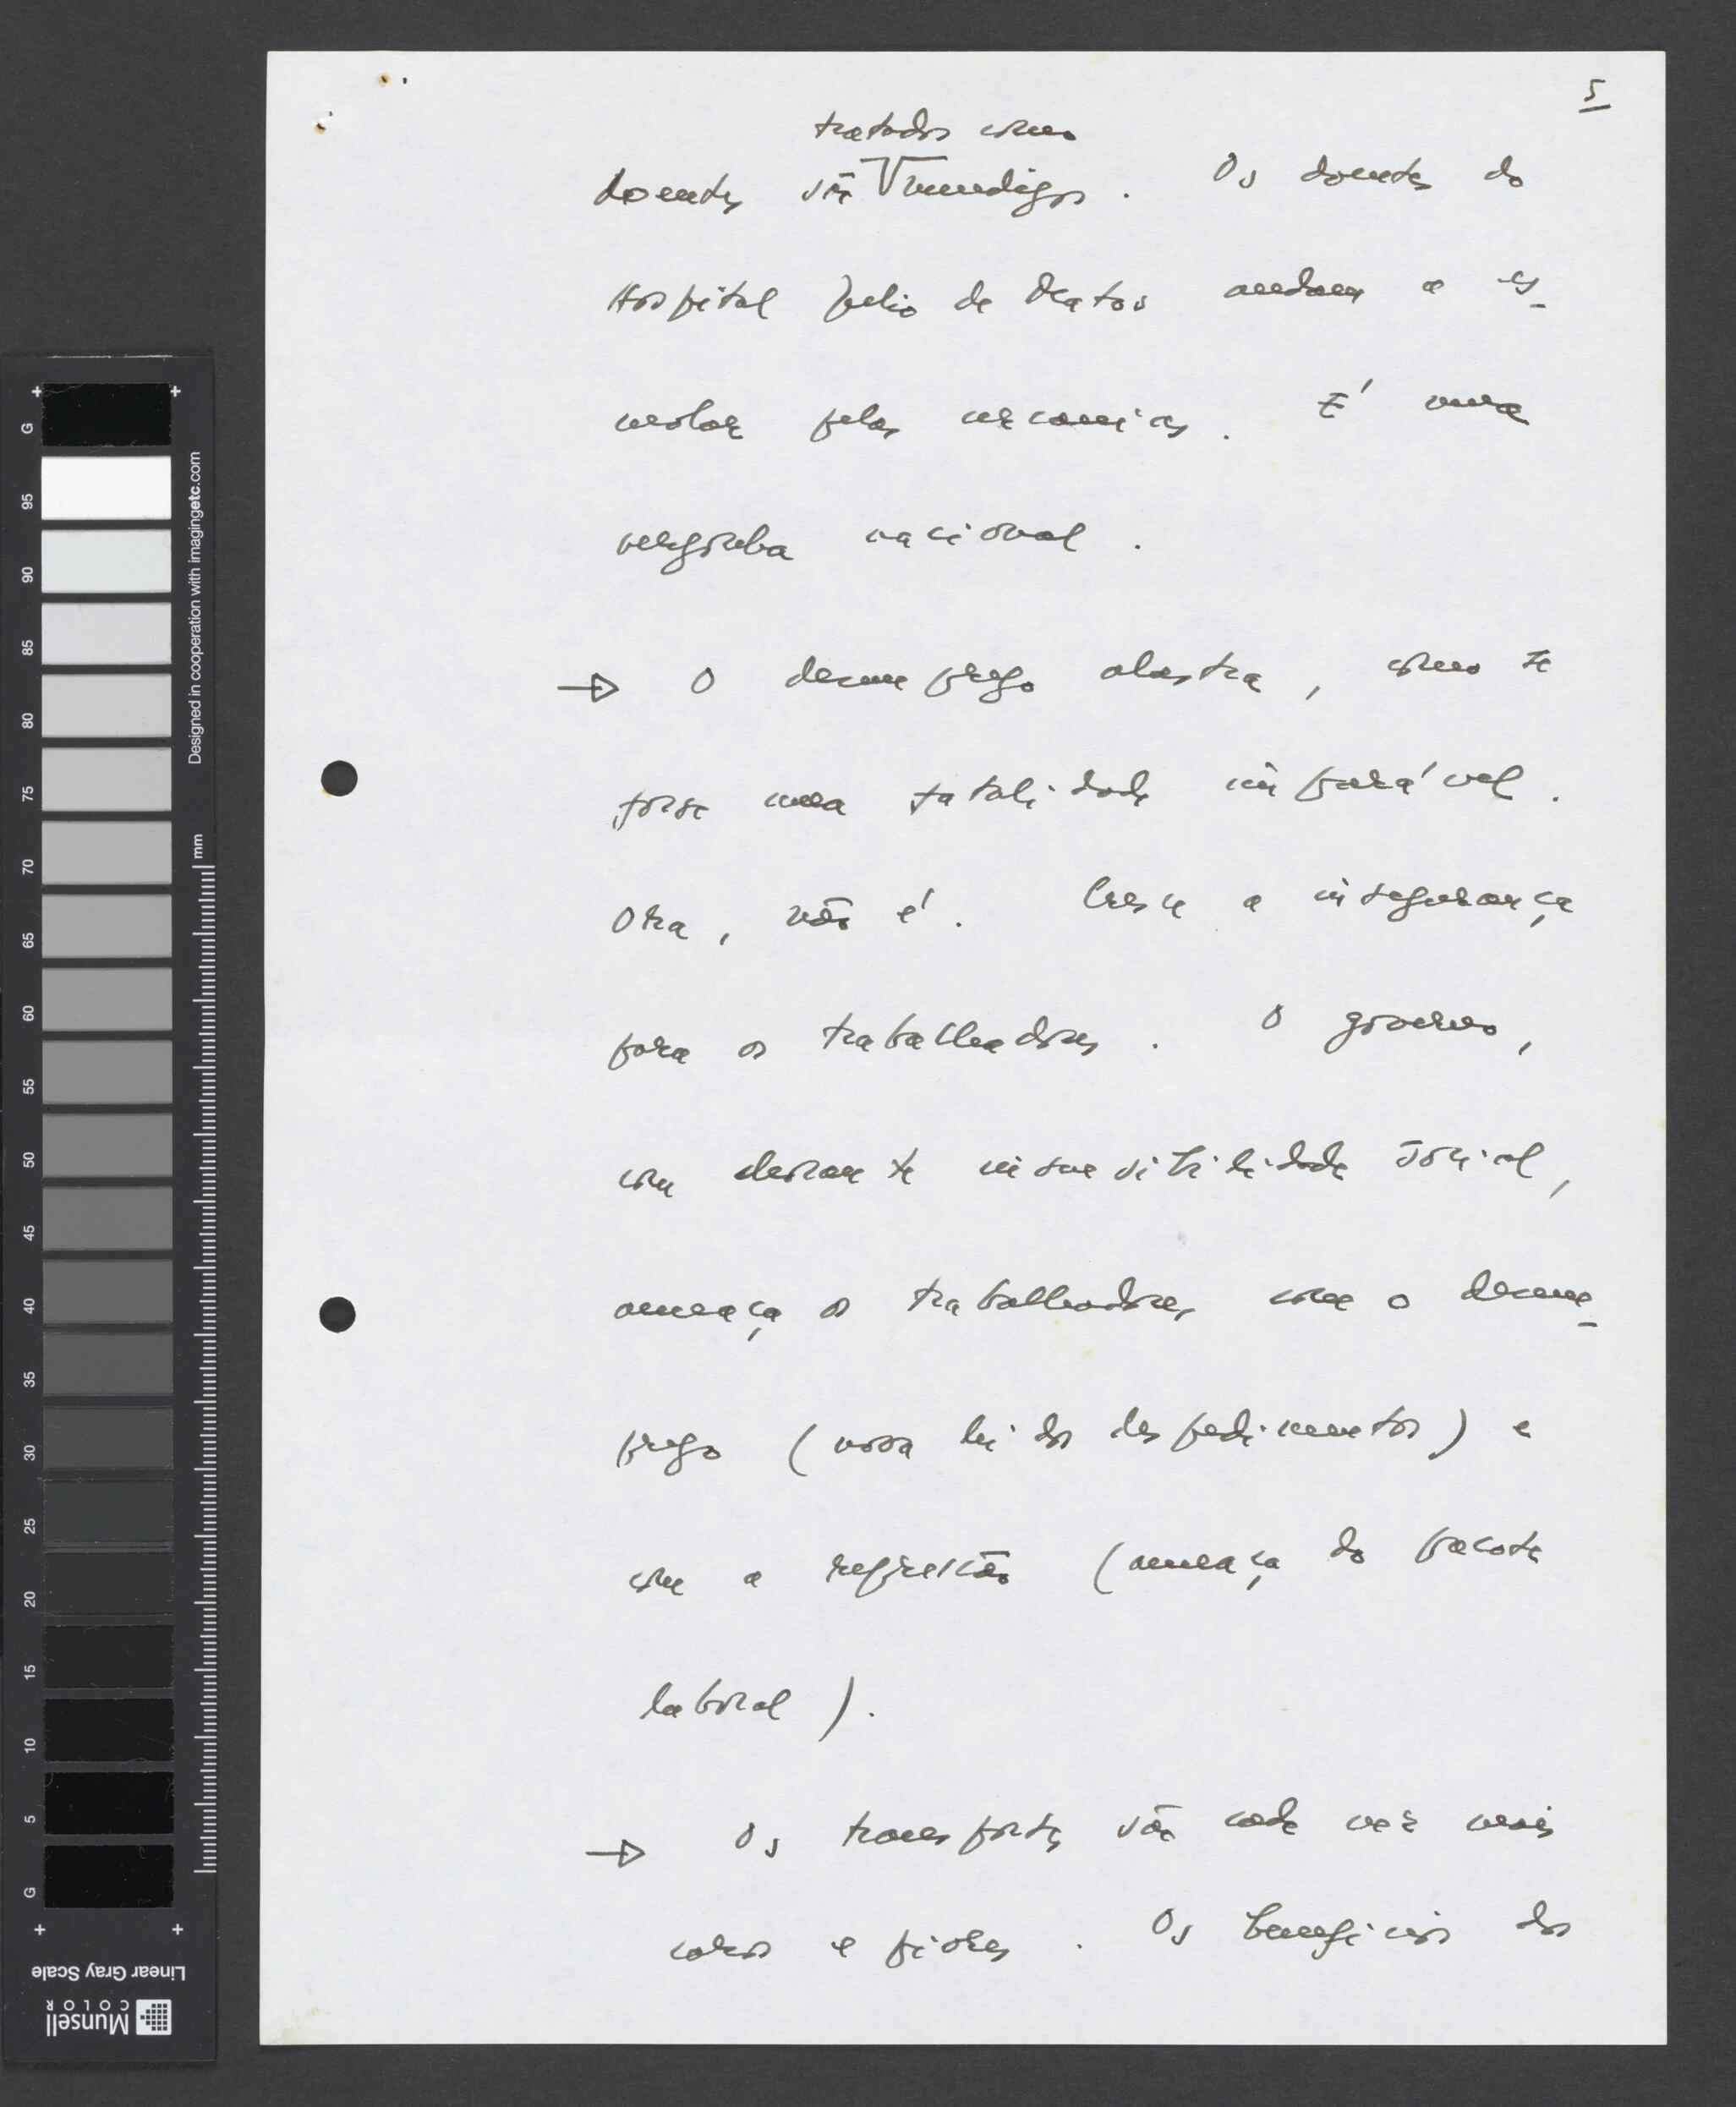 5
tratados como
doentes são mendigos. Os doentes do
Hospital Julio de Matos andam a es-
molar pelas cercanias. É uma
vergonha nacional.
→ O desemprego alastra, como se
fosse uma fatalidade imparável.
Ora, não é. Cresce a insegurança
para os trabalhadores. O governo,
com chocante insensibilidade social,
ameaça os trabalhadores com o desem-
prego (nova lei dos despedimentos) e
com a repressão (ameaça do pacote
laboral).
→ Os transportes são cada vez mais
caros e piores. Os benefícios dos
G 95 90 85 80 75 70 65 60 55 50 45 40 35 30 25 20 15 10 5 G
Designed in cooperation with imagingetc.com
mm
Linear Gray Scale
Munsell
COLOR